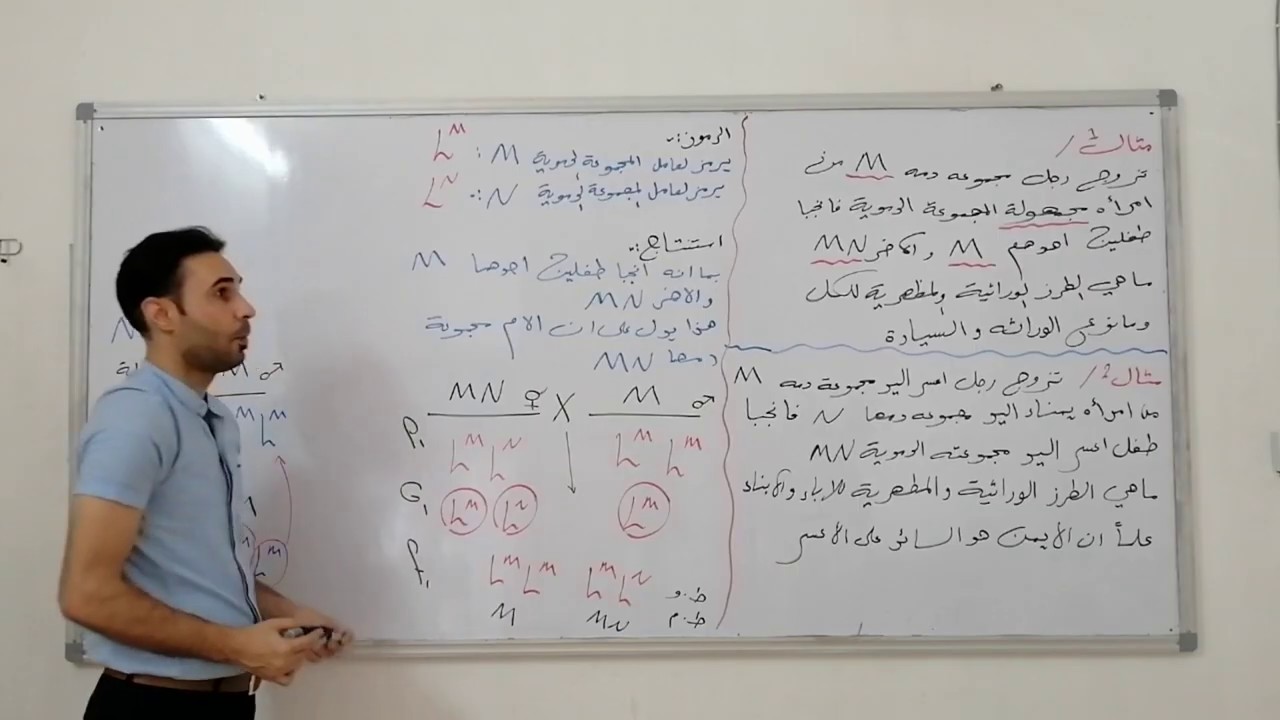 مثال 1/
تزوج رجل مجموعه دمه M من
امرأه مجهولة المجموعة الدموية فانجبا
طفلين احدهم M والاخر MN
ماهي الطرز الوراثية والمظهرية للكل
ومانوعي الوراثه والسيادة
مثال 2/ تزوج رجل اعسر اليد مجموعة دمه M
من امرأه يمناء اليد مجموعه دمها N فانجبا
طفل اعسر اليد مجموعته الدموية MN
ماهي الطرز الوراثية والمظهرية للاباء والابناء
علماً ان الأيمن هو السائد على الأعسر
الرموز:-
يرمز لعامل المجموعة الدموية M : Lᴹ
يرمز لعامل المجموعة الدموية N : Lᴺ
استنتاج:-
بما انه انجبا طفلين احدهما M
والاخر MN
هذا يدل على ان الام مجموعة
دمها MN
MN ♀ X M ♂
P₁ Lᴹ Lᴺ Lᴹ Lᴹ
G₁ Lᴹ Lᴺ Lᴹ
F₁ Lᴹ Lᴹ Lᴹ Lᴺ ط.و
M MN ط.م
M ♂
Lᴹ
Lᴹ